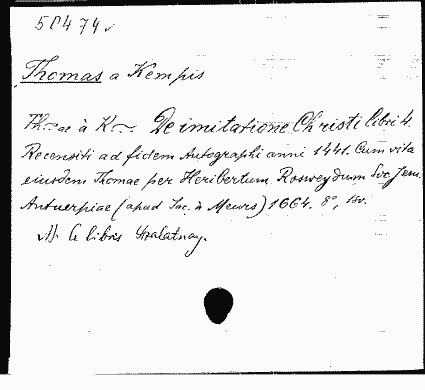 50474
Thomas a Kempis
Th~ae à K~. De imitatione Christi libri 4.
Recensiti ad fidem Autographi anni 1441. Cum vita
eiusdem Thomae per Heribertum Rosweydum Soc. Jesu.
Antverpiae (apud Jac. à Meurs) 1664. 8°, 1 sv.
libris